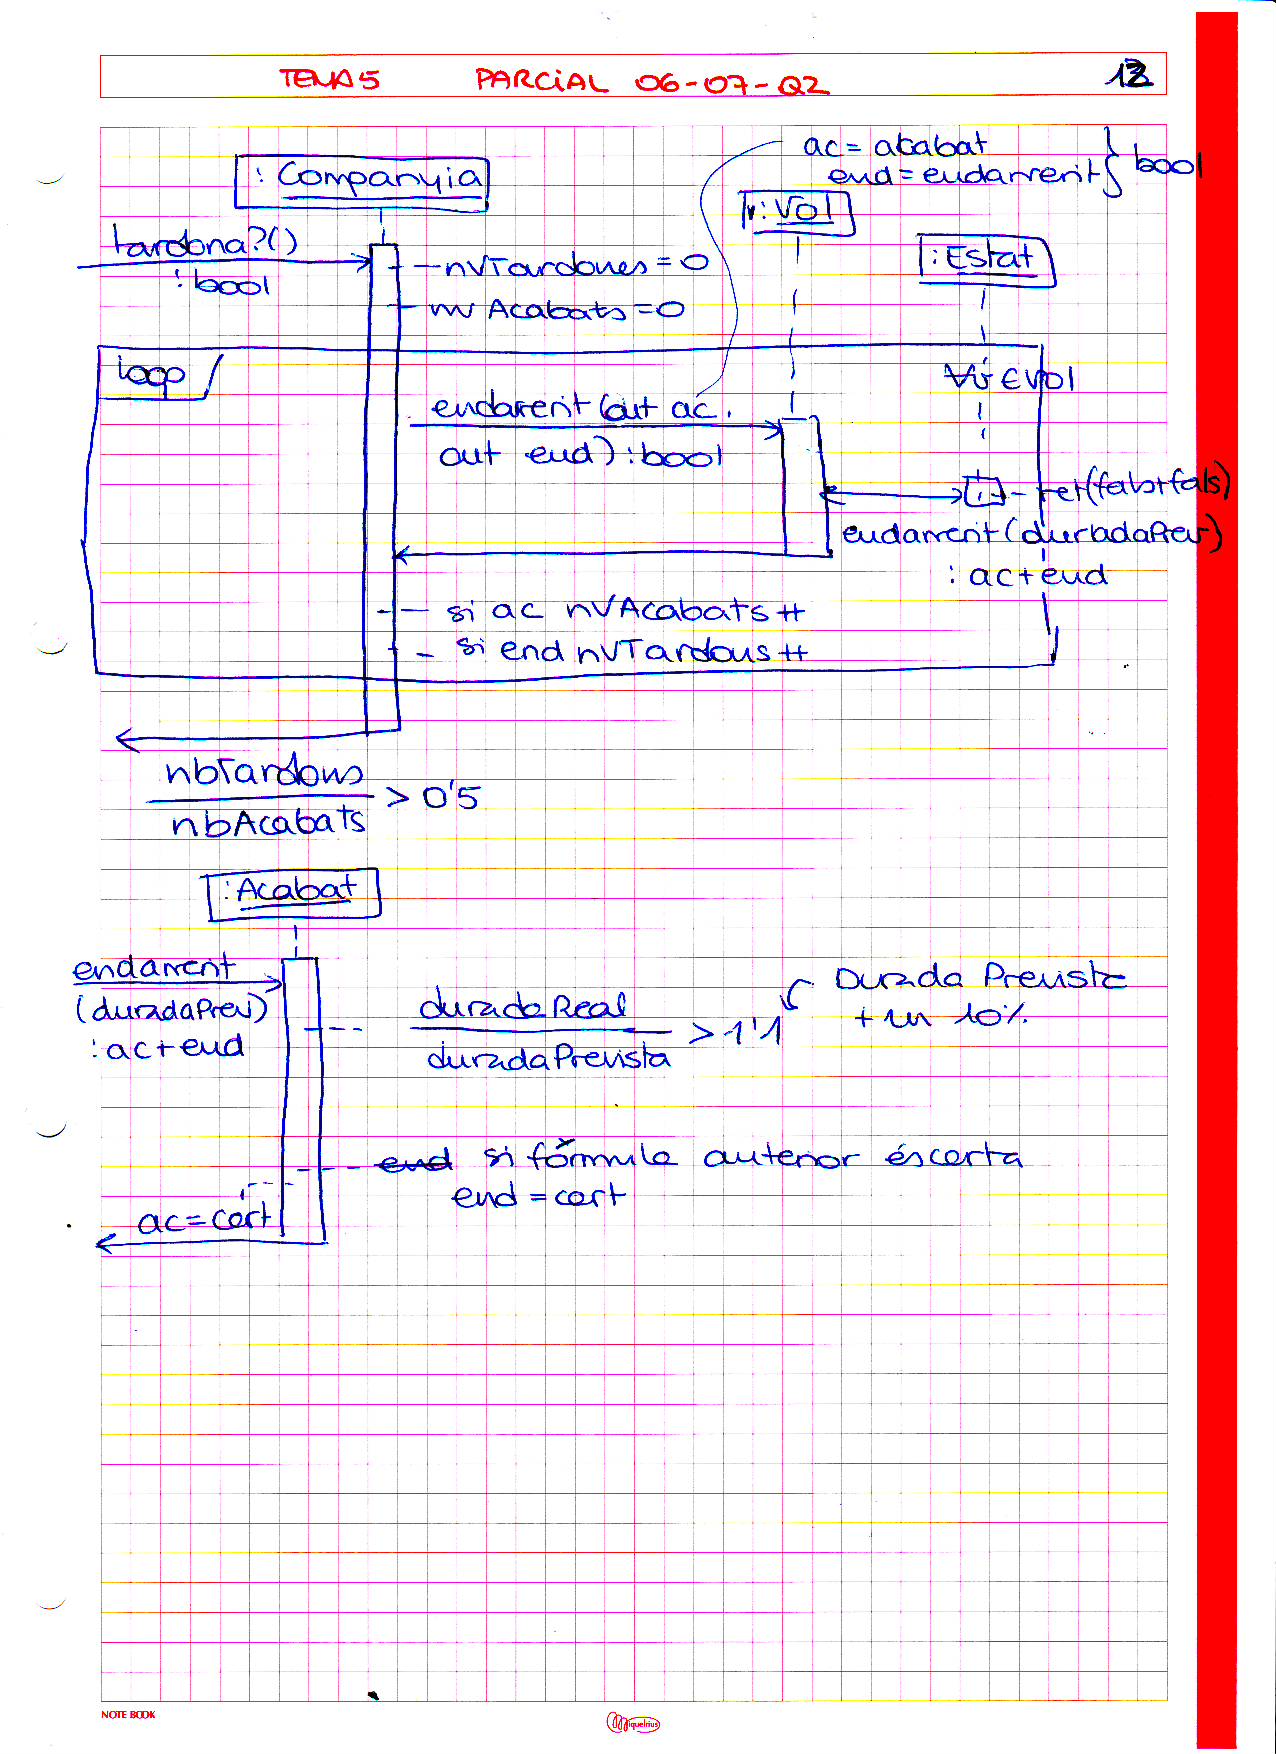 TEMA5 PARCIAL 06-07-Q2
ac = acabat
end = endarrerit } bool
: Companyia
v: Vol
: Estat
tardona?()
: bool
nVTardones = 0
nv Acabats = 0
loop
∀v ∈ vol
endarerit (out ac,
out end) : bool
ret(fals+fals)
endarrerit (duradaPrev)
: ac + end
si ac nVAcabats ++
si end nVTardous ++
nbTardous
nbAcabats
> 0'5
: Acabat
endarrerit
(duradaPrev)
: ac + end
durada Real
durada Prevista
> 1'1
Durada Prevista
+ un 10%
end si fórmula anterior és certa
end = cert
ac = cert
NOTE BOOK
Miquelrius